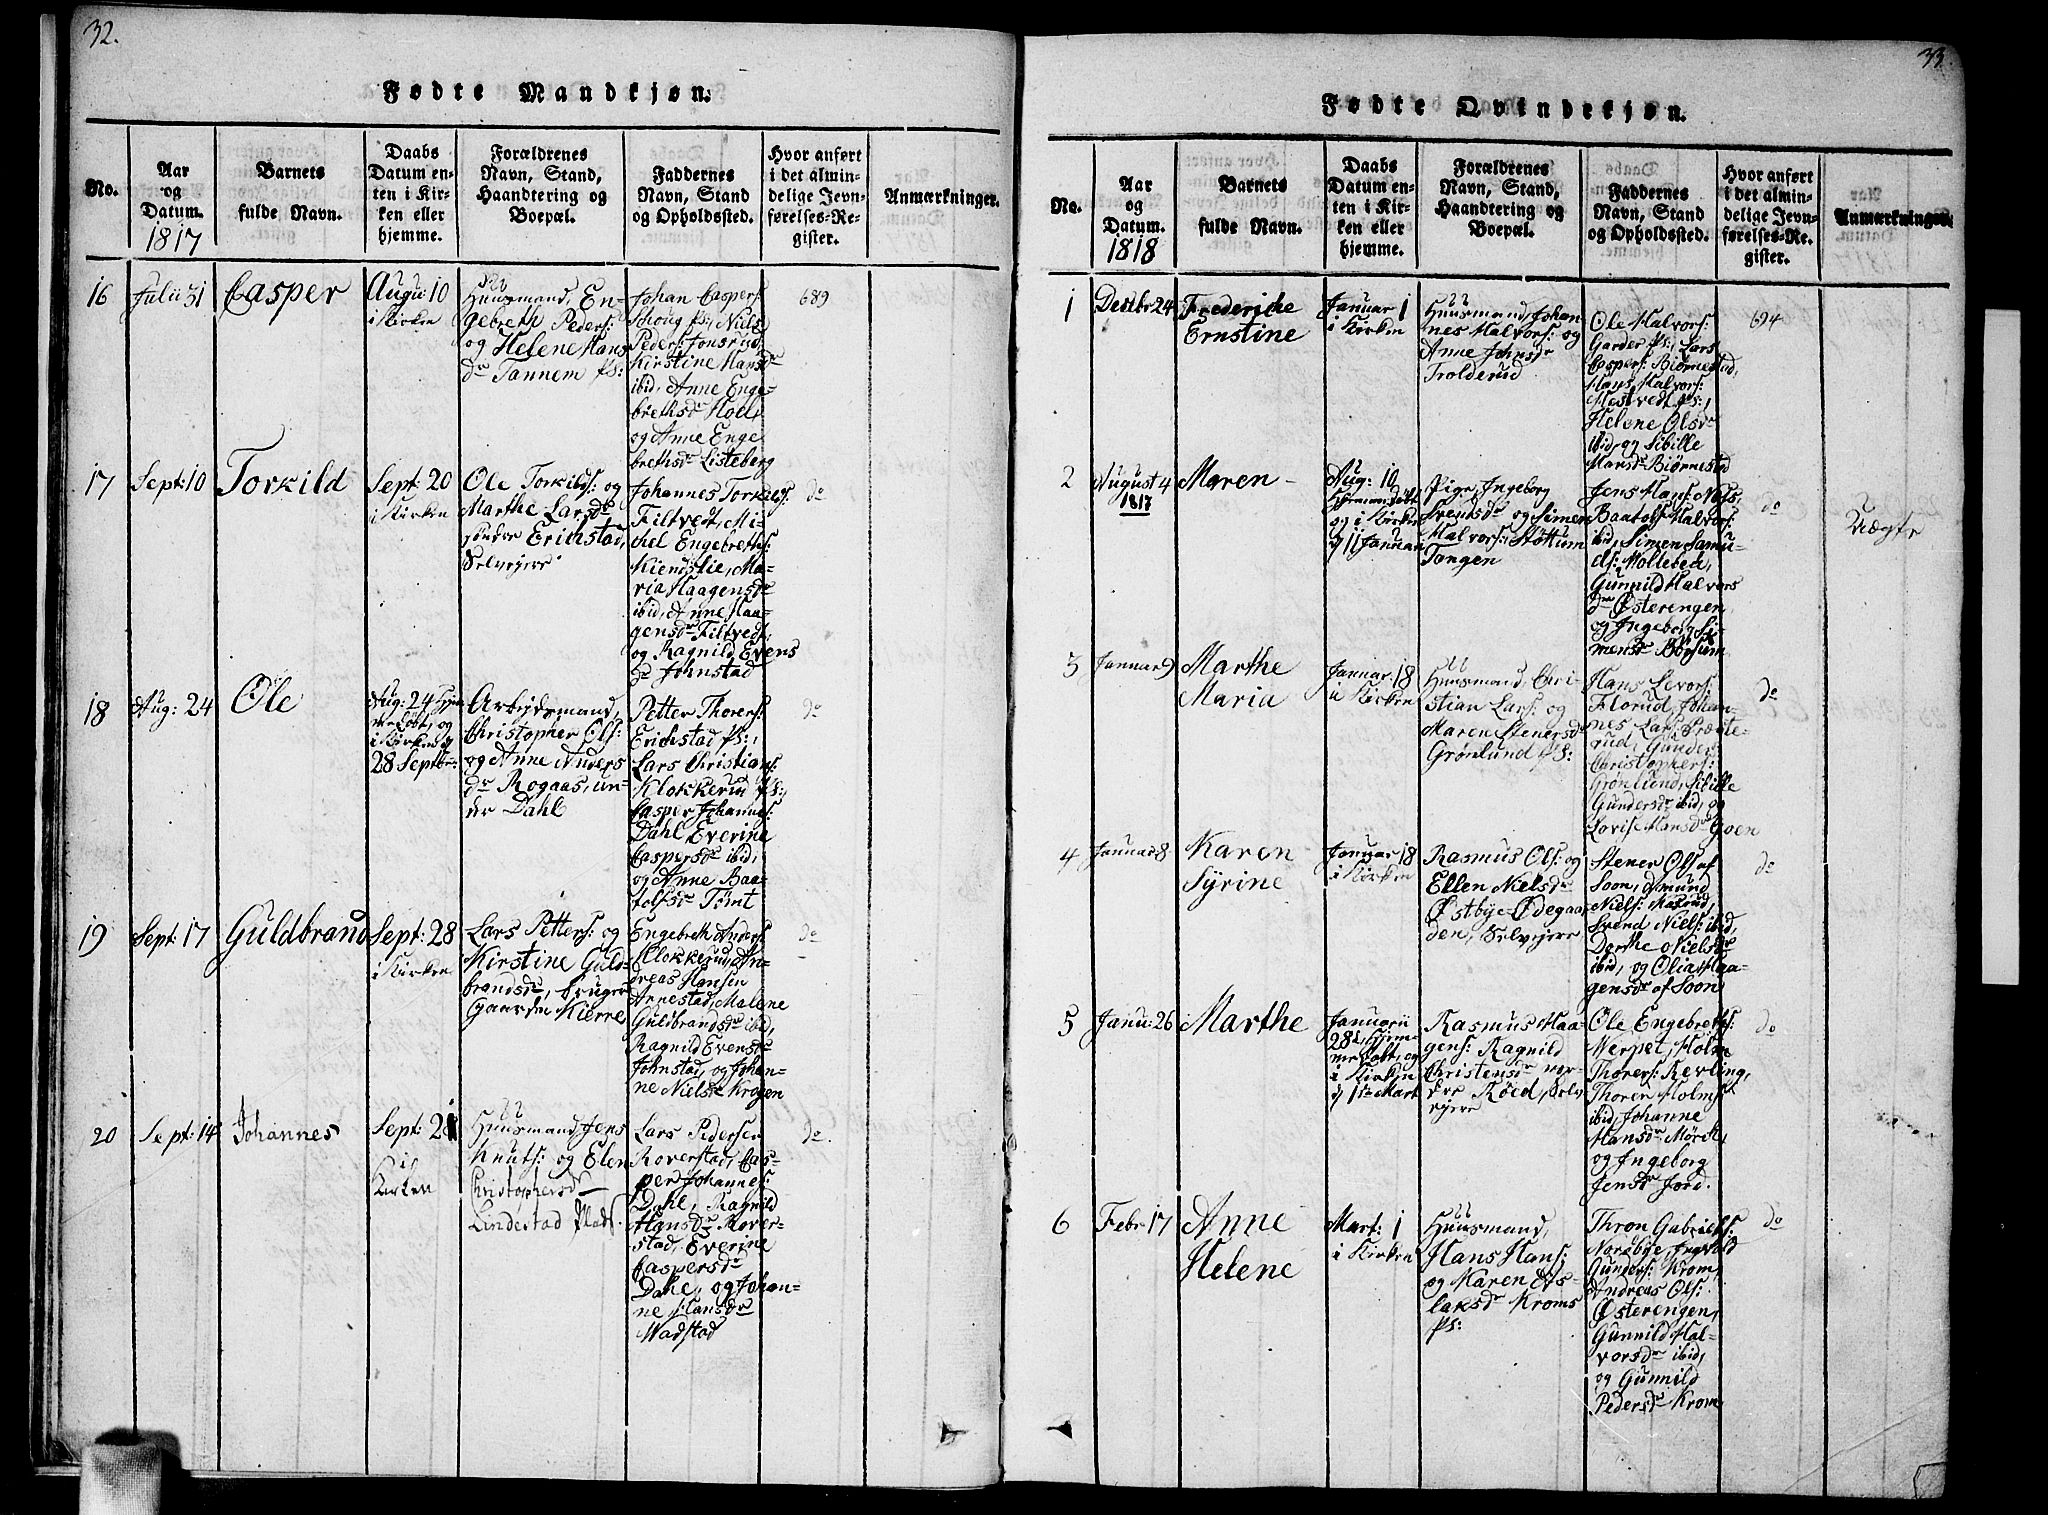 32.
Fødte Mandkjøn.
No.
Aar
og
Datum.
1817
Barnets
fulde Navn.
Daabs
Datum en-
ten i Kir-
ken eller
hjemme.
Forældrenes
Navn, Stand,
Haandtering og
Boepæl.
Faddernes
Navn, Stand
og Opholdssted.
Hvor anført
i det almin-
delige Jevn-
førelses-Re-
gister.
Anmærkninger.
16
Julii 31
Casper
Augu: 10
i Kirken
Huusmand, En-
gebreth Peders:
og Helene Hans
dr Tannem Ps:
Johan Caspers:
Schoug Ps:, Niels
Peders: Jonsrud,
Kirstine Hansdr
ibid, Anne Enge-
brethsdr Holl,
og Anne Enge
brethsdr Listeberg
689
17
Sept: 10
Torkild
Sept: 20
i Kirken
Ole Torkilds: og
Marthe Larsdr
søndre Erichstad,
Selvejere
Johannes Torkilds:
Filtvedt, Mi-
chel Engebreths:
Kiendslie, Ma-
ria Haagensdr
ibid, Anne Haa-
gensdr Filtvedt,
og Ragnild Evens
dr Johnstad
do
18
Aug: 24
Ole
Aug: 24 hjem-
me døbt, og
i Kirken d
28 Septbr:
Arbejdsmand,
Christopher Ols:
og Anne Anders
dr Rogaas, un-
der Dahl
Petter Thorers:
Erichstad Ps:,
Lars Christians:
Klokkerud Ps:,
Casper Johannes:
Dahl, Everine
Caspersdr ibid,
og Anne Baa-
tolfsdr Tømt
do
19
Sept: 17
Guldbrand
Sept: 28
i Kirken
Lars Petters: og
Kirstine Guld-
brandsdr, bruger
Gaarden Kierre
Engebreth Anders:
Klokkerud, An-
dreas Hansen
Annestad, Malene
Guldbrandsdr ibid,
Ragnild Evensdr
Johnstad, og Johan-
ne Nielsdr Krogen
do
20
Sept: 14
Johannes
Sept: 21
i
Kirken
Huusmand Jens
Knuts: og Elen
Christophersdr
Lindestad Plads.
Lars Pedersen
Roverstad, Cas-
per Johannes:
Dahl, Ragnild
Hansdr Rover-
stad, Everine
Caspersdr
Dahl, og Johan-
ne Hansdr
Wadstad
do.
33.
Fødte Qvindekjøn.
No.
Aar
og
Datum.
1818
Barnets
fulde Navn.
Daabs
Datum en-
ten i Kir-
ken eller
hjemme.
Forældrenes
Navn, Stand,
Haandtering og
Boepæl.
Faddernes
Navn, Stand
og Opholdssted.
Hvor anført
i det almin-
delige Jevn-
førelses-Re-
gister.
Anmærkninger.
1
Decbr 24
Frederiche
Ernstine
Januar 1
i Kirken
Huusmand, Johan-
nes Halvors: og
Anne Johnsdr
Trolderud
Ole Halvors:
Garder Ps:, Lars
Caspers: Biørnestad,
Hans Halvors:
Hestvedt Ps:,
Helene Olsdr
ibid, og Sibille
Hansdr Biørnestad
694
2
August 4
1817
Maren
Aug: 10
hjemmedøbt
og i Kirken
d 11 Januar
Pige, Ingeborg
Svendsdr og Simen
Halvors: Støttum
Tangen
Jens Hans: Næs,
Baatolf Halvors:
ibid, Simen Samu-
els: Mollebed,
Gunnild Halvors
dr Østerengen
og Ingeborg Si-
mensdr Børsum
do
Uægte
3
Januar 9
Marthe
Maria
Januar 18
i Kirken
Huusmand, Chri-
stian Lars: og
Maren Stenersdr
Grønlund Ps:
Hans Levors:
Florud, Johan-
nes Lars: Bræte-
rud, Gunder
Christophers:
Grønlund, Sibille
Gundersdr ibid, og
Lovise Hansdr Goen
do
4
Januar 8
Karen
Syrine
Januar 18
i Kirken
Rasmus Ols: og
Ellen Nielsdr
Østbye-Ødegaar-
den, Selvejere
Stener Ols: af
Soon, Amund
Niels: Raxrud,
Svend Niels: ibid,
Dorthe Nielsdr
ibid, og Olia Haa-
gensdr af Soon
do
5
Janu: 26
Marthe
Januarii
28de, hjem-
me døbt, og
i Kirken
d 1ste Mart
Rasmus Haa-
gens: Ragnild
Christensdr nor-
dre Røed, Selv
ejere
Ole Engebreths:
Werpet, Holm
Thorers: Revling,
Thorer Holms:
ibid, Johanne
Hansdr Mørk,
og Ingeborg
Jensdr Jord.
do
6
Febr 17
Anne
Helene
Mart: 1
i Kirken
Huusmand,
Hans Hans:
og Karen As-
laksdr Kroms
Ps:
Thron Gabriels:
Nordbye, Ingvold
Gunders: Krom,
Andreas Ols:
Østerengen,
Gunnild Hal-
vorsdr ibid,
og Gunnild
Pedersdr Krom
do